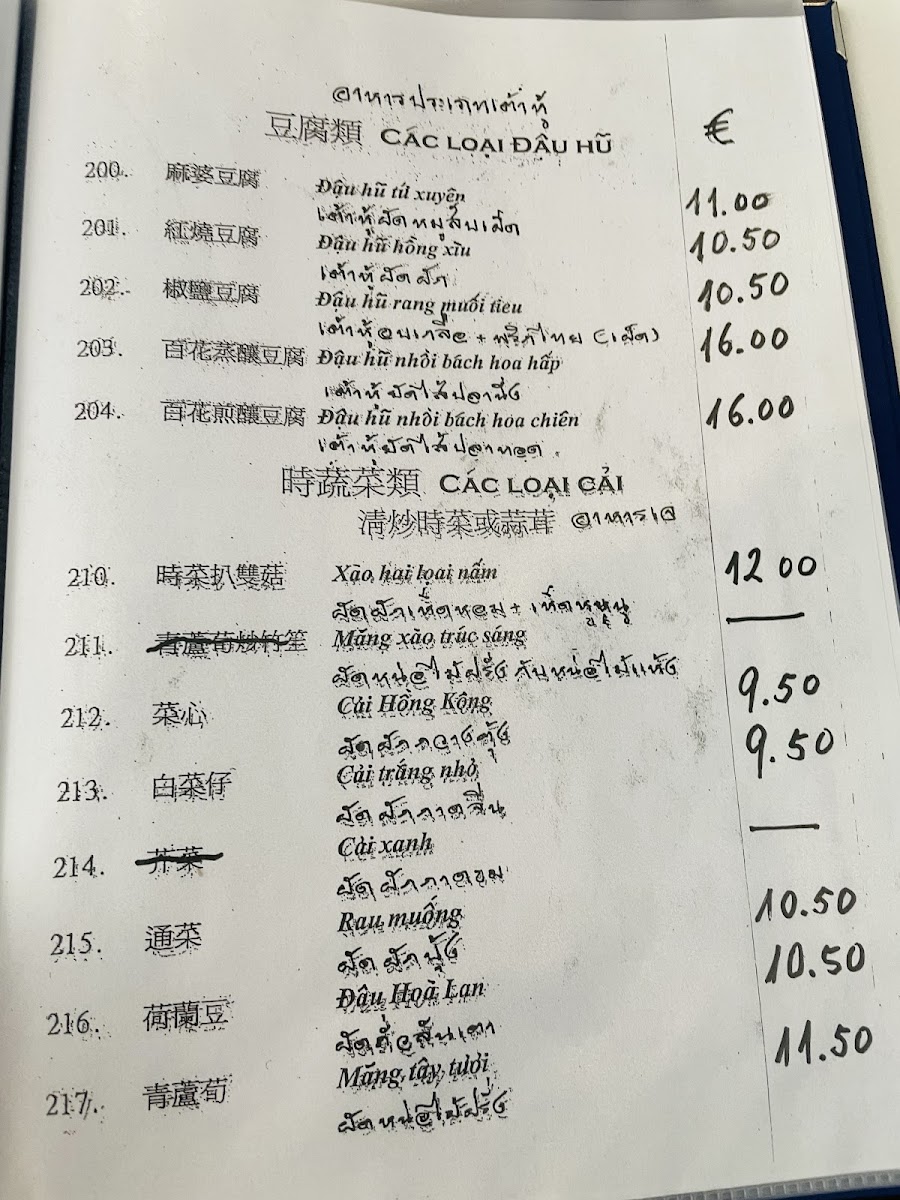 อาหารประเภทเต้าหู้
豆腐類 CÁC LOẠI ĐẬU HŨ €
200. 麻婆豆腐 Đậu hũ tứ xuyên 11.00
เต้าหู้ผัดหมูสับเผ็ด
201. 紅燒豆腐 Đậu hũ hồng xíu 10.50
เต้าหู้ผัดผัก
202. 椒鹽豆腐 Đậu hũ rang muối tieu 10.50
เต้าหู้อบเกลือ + พริกไทย (เผ็ด)
203. 百花蒸釀豆腐 Đậu hũ nhồi bách hoa hấp 16.00
เต้าหู้ยัดไส้ปลานึ่ง
204. 百花煎釀豆腐 Đậu hũ nhồi bách hoa chiên 16.00
เต้าหู้ยัดไส้ปลาทอด.
時蔬菜類 CÁC LOẠI CẢI
清炒時菜或蒜茸 อาหารเจ
210. 時菜扒雙菇 Xào hai loại nấm 12 00
ผัดผักเห็ดหอม + เห็ดหูหนู
211. 青蘆荀炒竹笙 Măng xào trúc sáng —
ผัดหน่อไม้ฝรั่ง กับหน่อไม้แห้ง
212. 菜心 Cải Hồng Kông 9.50
ผัดผักกวางตุ้ง
213. 白菜仔 Cải trắng nhỏ 9.50
ผัดผักกาดจีน
214. 芥菜 Cải xanh —
ผัดผักกาดขม
215. 通菜 Rau muống 10.50
ผัดผักบุ้ง
216. 荷蘭豆 Đậu Hoà Lan 10.50
ผัดถั่วลันเตา
217. 青蘆荀 Măng tây tươi 11.50
ผัดหน่อไม้ฝรั่ง